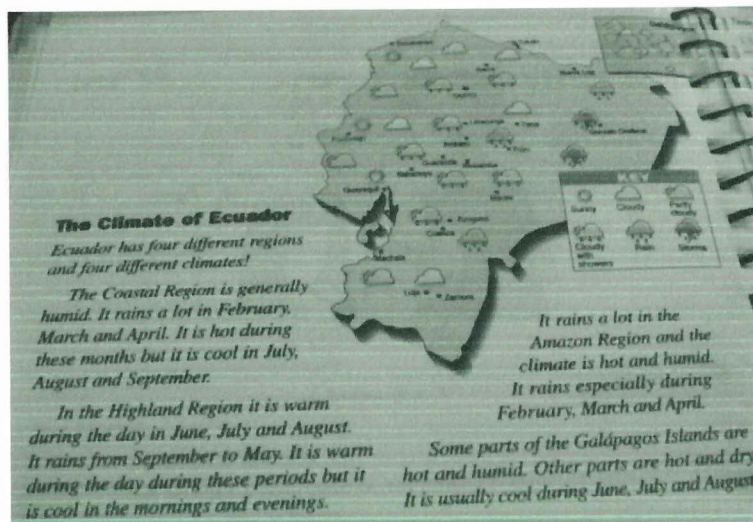 The Climate of Ecuador
Ecuador has four different regions
and four different climates!
The Coastal Region is generally
humid. It rains a lot in February,
March and April. It is hot during
these months but it is cool in July,
August and September.
In the Highland Region it is warm
during the day in June, July and August.
It rains from September to May. It is warm
during the day during these periods but it
is cool in the mornings and evenings.
KEY
Sunny
Cloudy
Partly
cloudy
Cloudy
with
showers
Rain
Storms
Machala
Loja
Zamora
It rains a lot in the
Amazon Region and the
climate is hot and humid.
It rains especially during
February, March and April.
Some parts of the Galápagos Islands are
hot and humid. Other parts are hot and dry.
It is usually cool during June, July and August